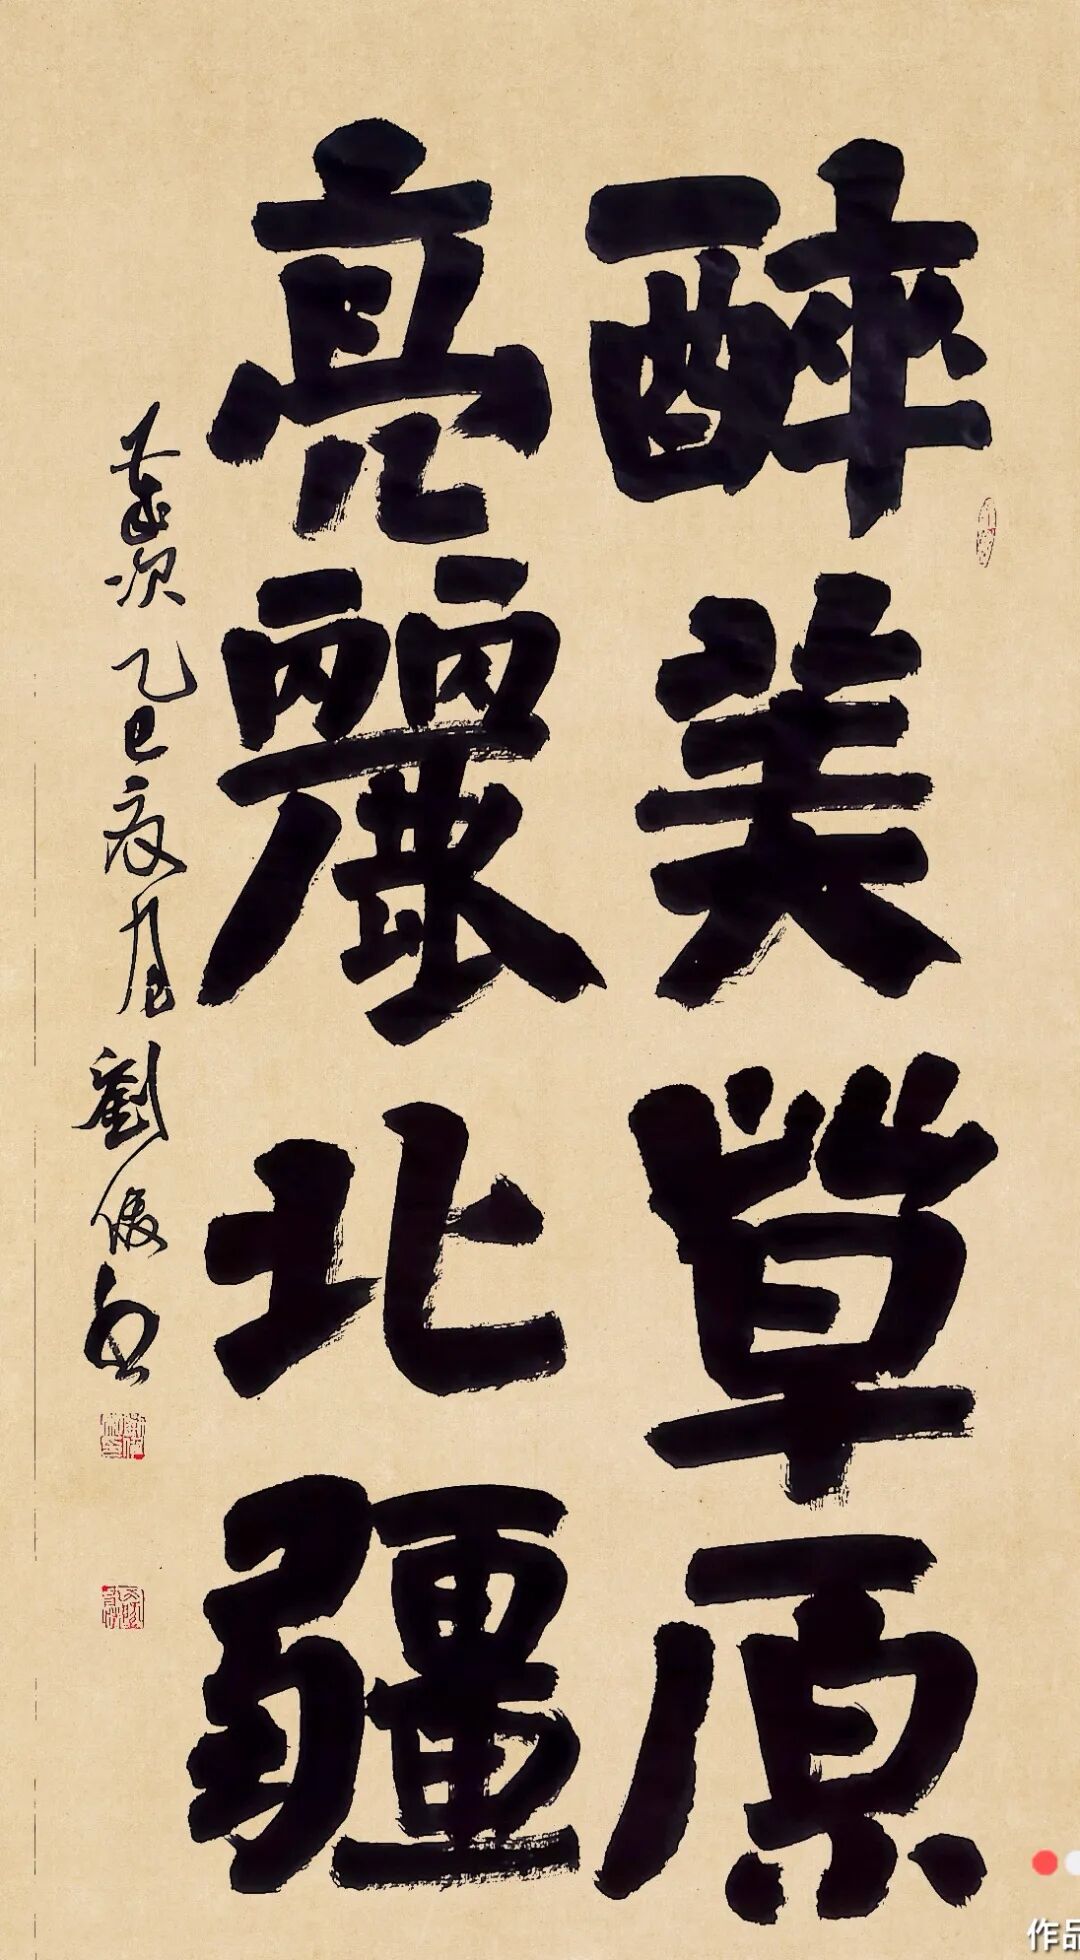 醉美草原
亮麗北疆
歲次乙巳夜月劉俊書
作品